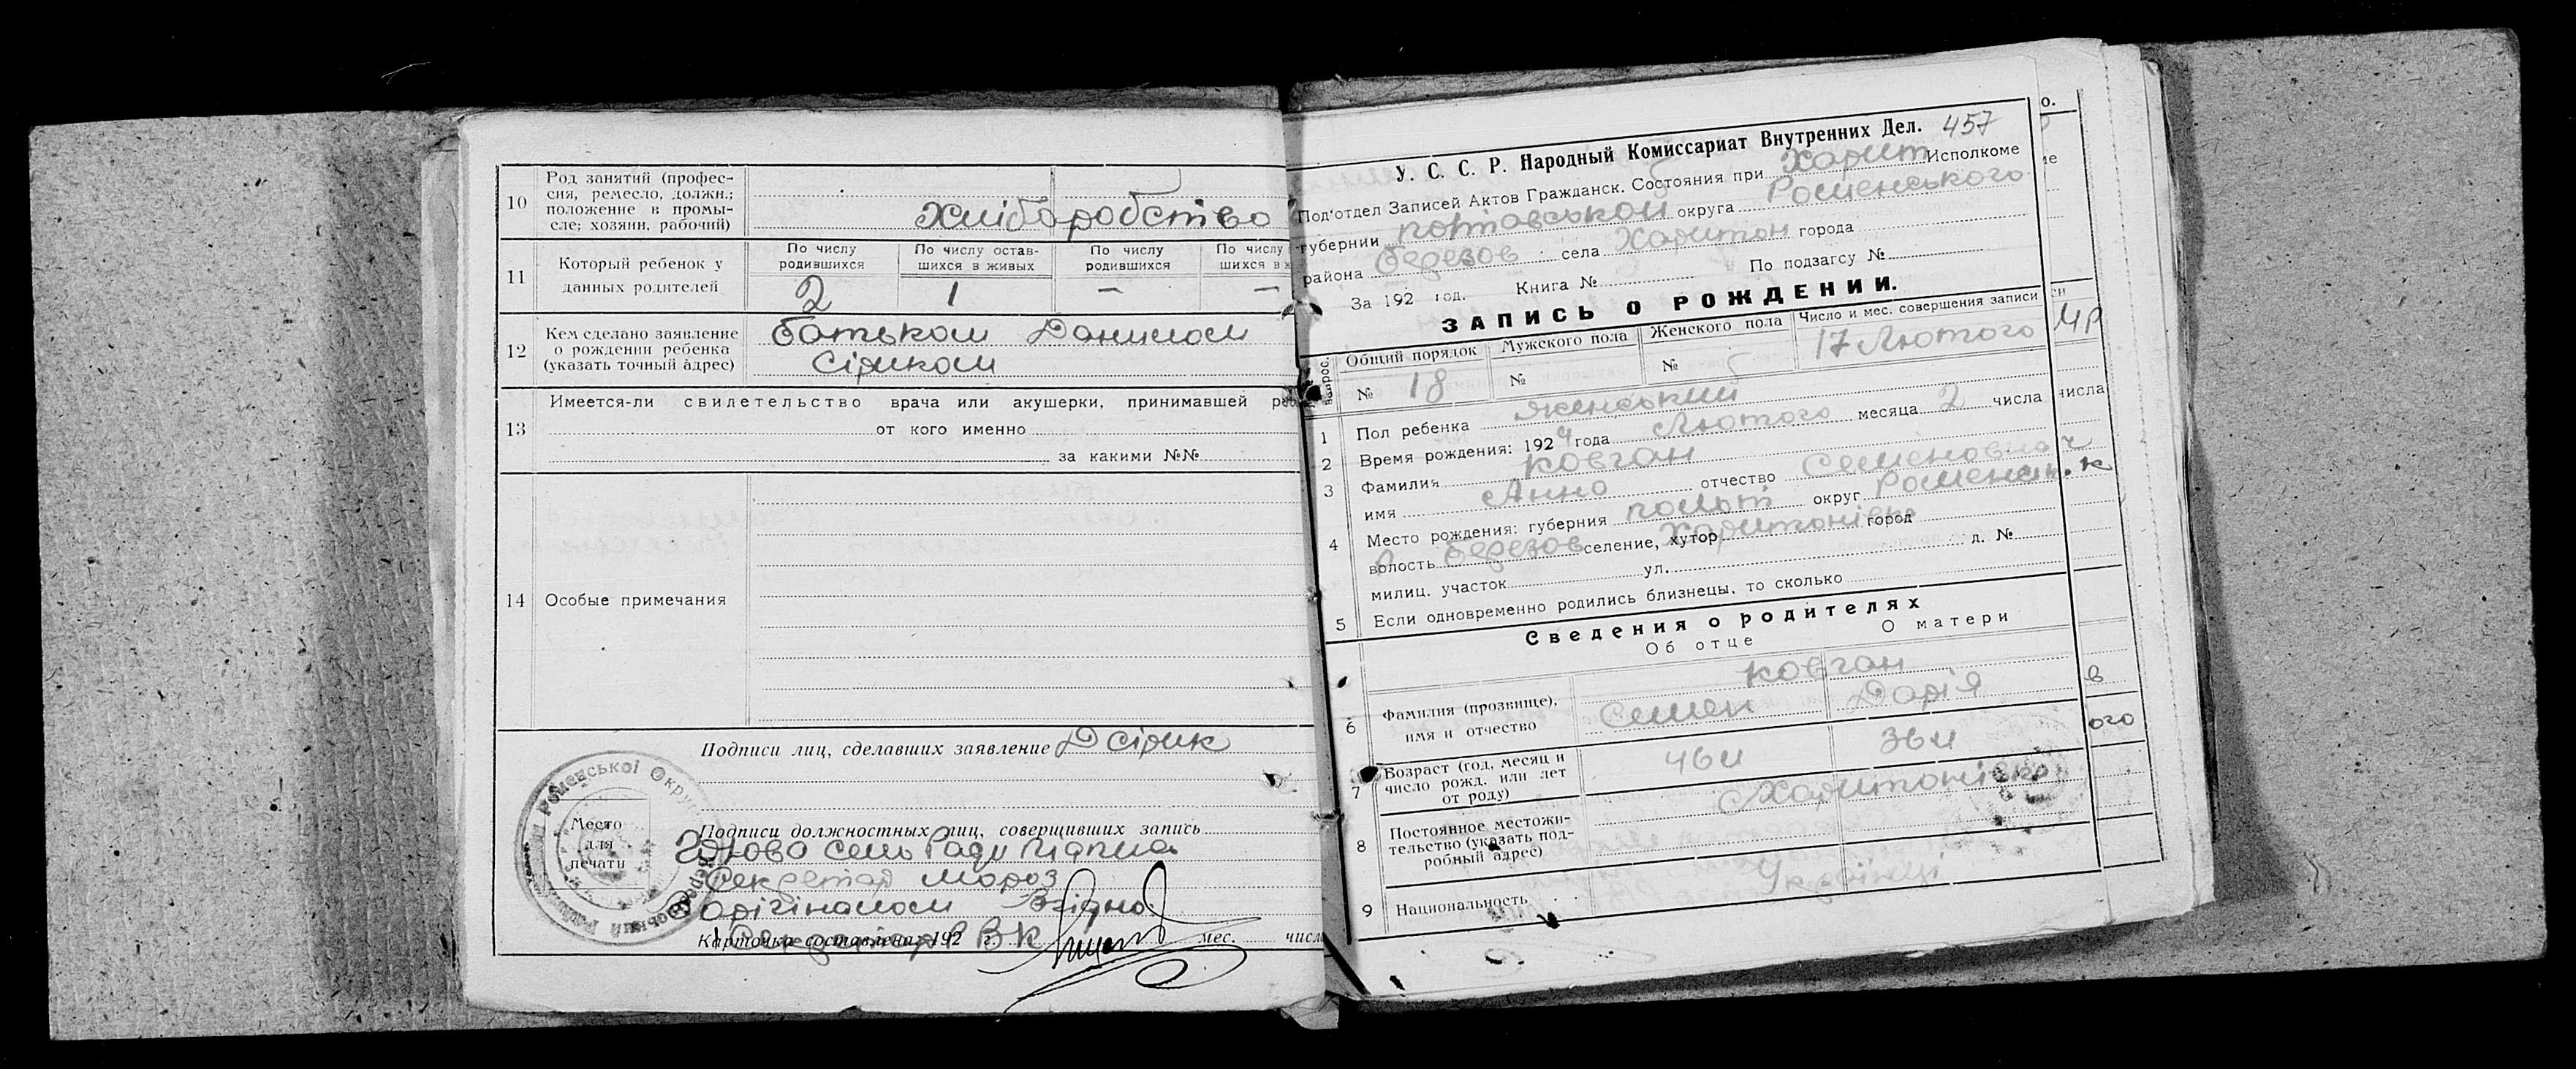 10 Род занятий (профес-
сия, ремесло, должн.;
положение в промы-
сле; хозяин, рабочий)
Хліборобство
11 Который ребенок у
данных родителей
По числу
родившихся
По числу остав-
шихся в живых
По числу
родившихся
По числу
шихся в
2 1 — —
12 Кем сделано заявление
о рождении ребенка
(указать точный адрес)
батьком Данилом
Сіриком
13 Имеется-ли свидетельство врача или акушерки, принимавшей
от кого именно
за какими №№
14 Особые примечания
Подписи лиц, сделавших заявление Д Сірик
Роменської Окру
Место
для
печати
Подписи должностных лиц, совершивших запись
Голова Сель Ради
Секретар Мороз
З орігіналом Згідно:
Карточка составлена: 192 г. мес. числ
Секретар ВК
У. С. С. Р. Народный Комиссариат Внутренних Дел. 457
Под'отдел Записей Актов Гражданск. Состояния при Харит Исполкоме
губернии Полтавської округа Роменського
района Березов села Харитон города
За 192 год. Книга № По подзагсу №
ЗАПИСЬ О РОЖДЕНИИ.
Общий порядок Мужского пола Женского пола Число и мес. совершения записи
№ 18 № № 17 Лютого
1 Пол ребенка женський
2 Время рождения: 1924 года Лютого месяца 2 числа
3 Фамилия Ковган
имя Анна отчество Семеновна
4 Место рождения: губерния Полт округ Роменськ.
волость Березов селение, хутор Харитонівка город
милиц. участок ул. д. №
5 Если одновременно родились близнецы, то сколько
Сведения о родителях
Об отце О матери
6 Фамилия (прозвище),
имя и отчество
Ковган
Семен Дарія
7 Возраст (год, месяц и
число рожд. или лет
от роду)
8 Постоянное местожи-
тельство (указать под-
робный адрес)
Харитонівка
9 Национальность
Українці
о.
ме
си
числа
ого